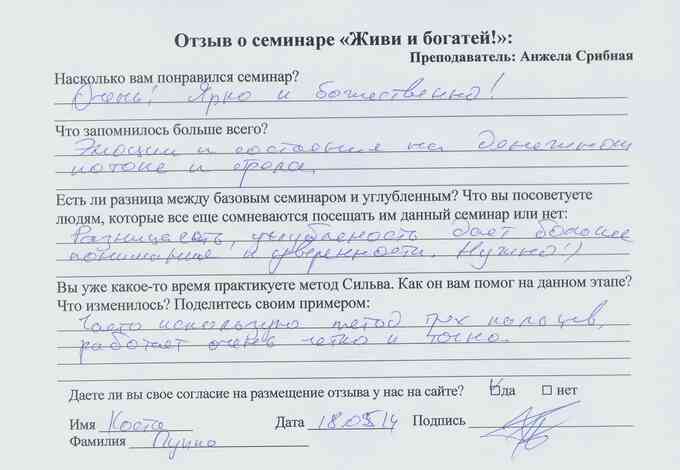 Отзыв о семинаре «Живи и богатей!»:
Преподаватель: Анжела Срибная
Насколько вам понравился семинар?
Очень! Ярко и божественно!
Что запомнилось больше всего?
Эмоции и состояния на денежном
потоке и
Есть ли разница между базовым семинаром и углубленным? Что вы посоветуете
людям, которые все еще сомневаются посещать им данный семинар или нет:
Разница есть, углубленость дает большее
понимание и уверенности. Нужно!)
Вы уже какое-то время практикуете метод Сильва. Как он вам помог на данном этапе?
Что изменилось? Поделитесь своим примером:
Часто использую метод трех пальцев,
работает очень четко и точно.
Даете ли вы свое согласие на размещение отзыва у нас на сайте? да нет
Имя Костя Дата 18.05.14 Подпись
Фамилия